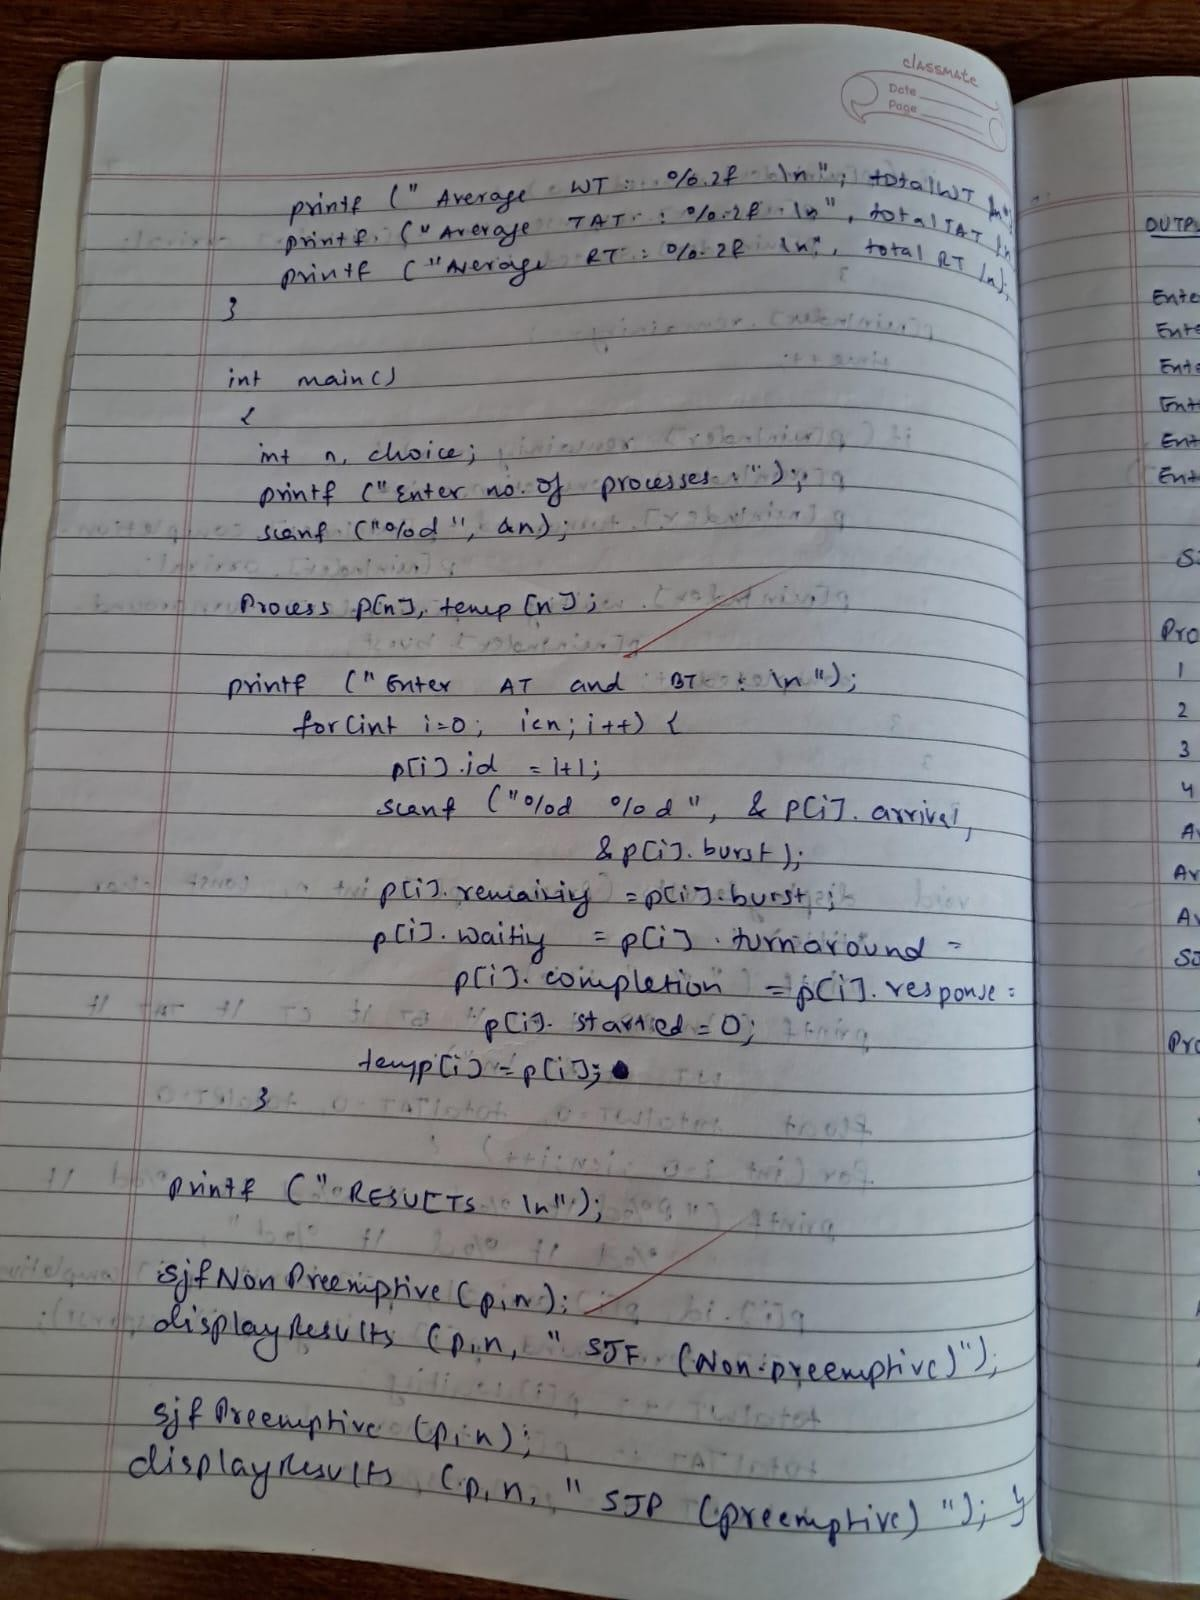 classmate
Date
Page
printf (" Average WT : %.2f \n", totalWT /n);
printf (" Average TAT : %.2f \n", totalTAT /n
printf ("Average RT : %.2f \n", total RT /n);
}
int main()
{
int n, choice;
printf ("Enter no. of processes : ");
scanf ("%d", &n);
Process p[n], temp [n];
printf (" Enter AT and BT : \n ");
for(int i=0; i<n; i++) {
p[i].id = i+1;
scanf ("%d %d", & p[i]. arrival,
& p[i]. burst);
p[i].remaining = p[i].burst;
p[i]. waiting = p[i] . turnaround =
p[i]. completion = p[i]. response =
p[i]. started = 0;
temp[i] = p[i];
}
printf (" RESULTS \n");
sjf Non Preemptive (p,n);
displayResults (p,n, " SJF (Non-preemptive)");
sjf Preemptive (p,n);
displayResults (p, n, " SJP (preemptive) "); }
OUTPU
Ente
Ente
Ente
Ent
Ent
Ent
SJ
Pro
1
2
3
4
Av
Av
Av
SJ
Pro